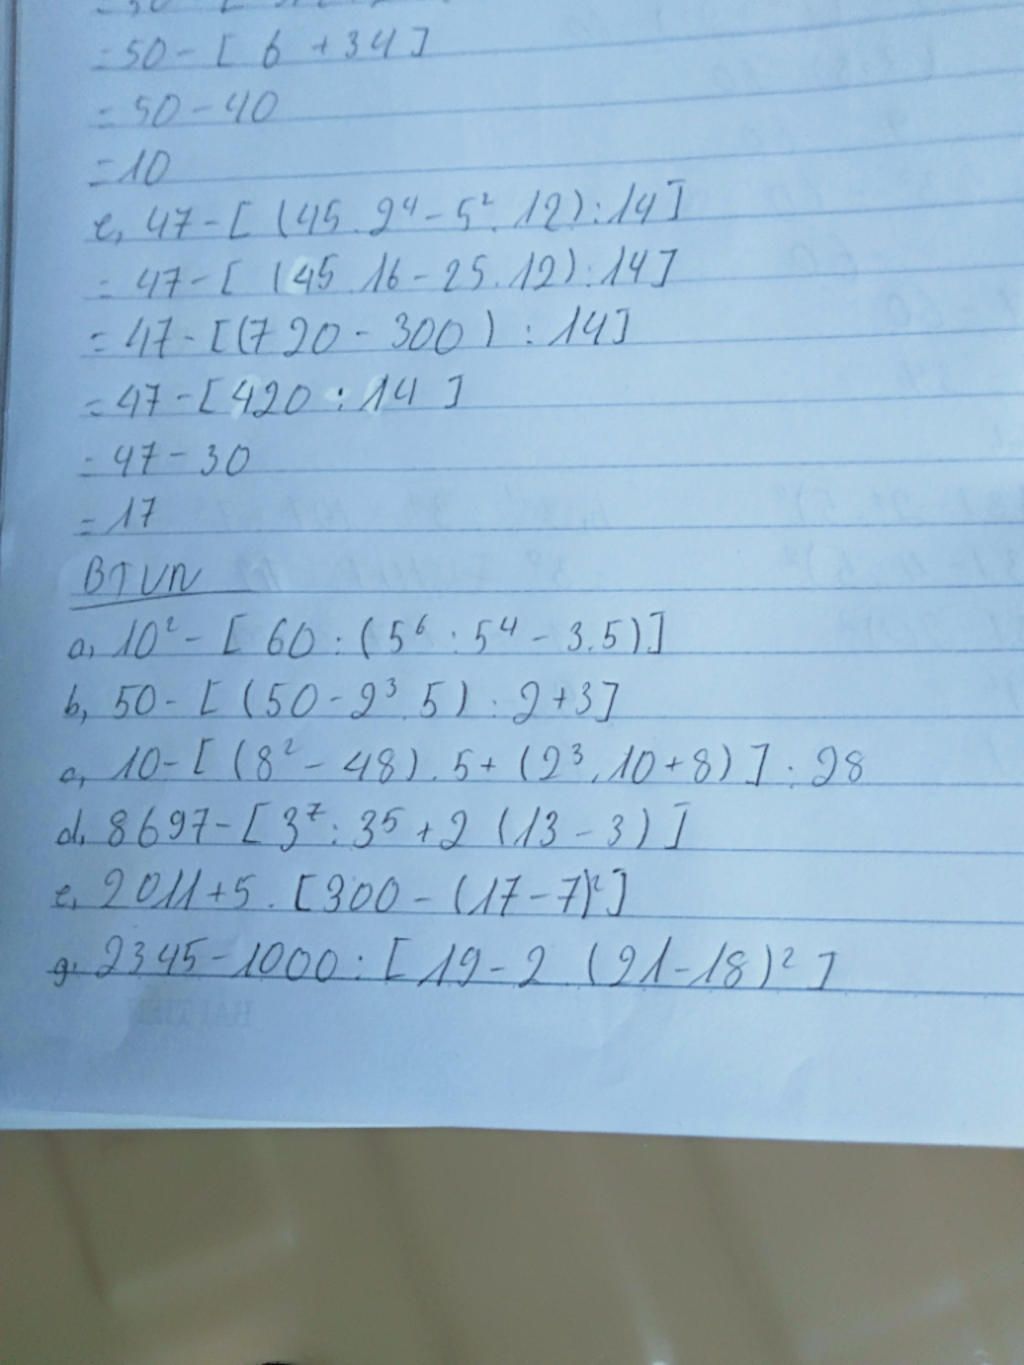 = 50 - [ 6 + 34 ]
= 50 - 40
= 10
e, 47 - [ (45 . 2⁴ - 5² . 12) : 14 ]
= 47 - [ (45 . 16 - 25 . 12) : 14 ]
= 47 - [(720 - 300) : 14]
= 47 - [420 : 14 ]
= 47 - 30
= 17
BTVN
a, 10² - [ 60 : (5⁶ : 5⁴ - 3.5)]
b, 50 - [ (50 - 2³ . 5) : 2 + 3]
c, 10 - [ (8² - 48) . 5 + (2³ . 10 + 8) ] : 28
d, 8697 - [ 3⁷ : 3⁵ + 2 (13 - 3) ]
e, 2011 + 5 . [300 - (17 - 7)²]
g. 2345 - 1000 : [ 19 - 2 (21 - 18)² ]